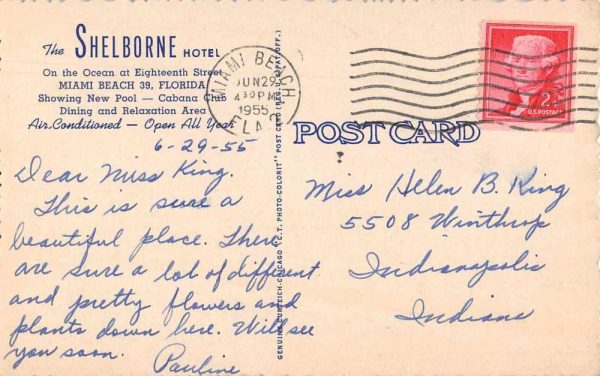 The SHELBORNE HOTEL
On the Ocean at Eighteenth Street
MIAMI BEACH 39, FLORIDA
Showing New Pool — Cabana Club
Dining and Relaxation Area
Air-Conditioned — Open All Year
MIAMI BEACH
JUN 29
4 30 PM
1955
FLA.
2¢
U.S. POSTAGE
POST CARD
6-29-55
Dear Miss King.
This is sure a
beautiful place. There
are sure a lot of different
and pretty flowers and
plants down here. Will see
you soon.
Pauline
GENUINE CURTEICH-CHICAGO "C.T. PHOTO-COLORIT" POST CARD (REG. U.S. PAT. OFF.)
Miss Helen B. King
5508 Winthrop
Indianapolis
Indiana